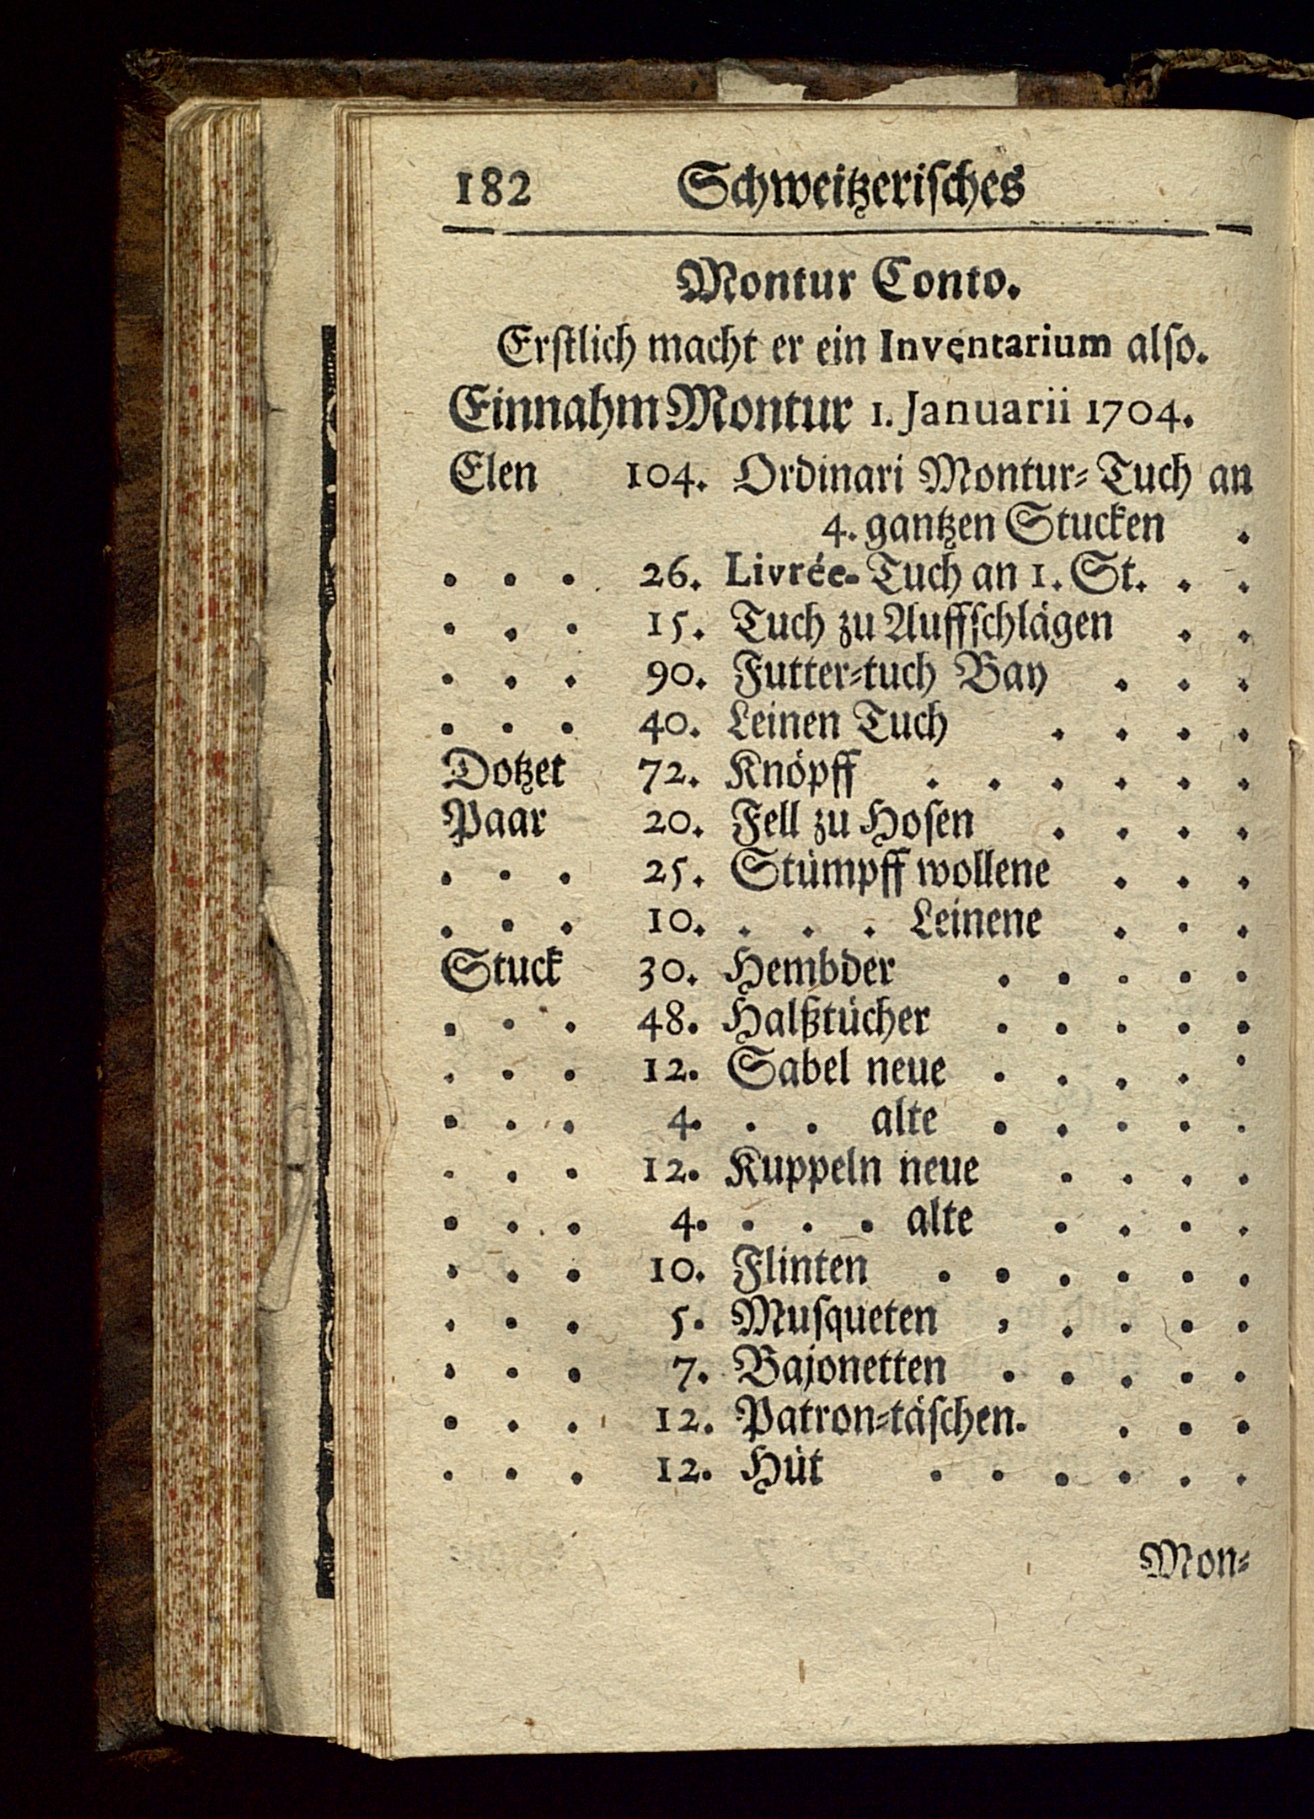 182 Schweitzerisches
Montur Conto.
Erstlich macht er ein Inventarium also.
Einnahm Montur 1. Januarii 1704.
Elen 104. Ordinari Montur-Tuch an
4. gantzen Stucken .
. . . 26. Livrée-Tuch an 1. St. . .
. . . 15. Tuch zu Auffschlägen . .
. . . 90. Futter-tuch Bay . . .
. . . 40. Leinen Tuch . . . .
Dotzet 72. Knöpff . . . . . .
Paar 20. Fell zu Hosen . . . .
. . . 25. Stümpff wollene . . .
. . . 10. . . . Leinene . . .
Stuck 30. Hembder . . . . .
. . . 48. Halßtücher . . . . .
. . . 12. Sabel neue . . . . .
. . . 4. . . alte . . . . .
. . . 12. Kuppeln neue . . . .
. . . 4. . . . alte . . . .
. . . 10. Flinten . . . . . .
. . . 5. Musqueten . . . . .
. . . 7. Bajonetten . . . . .
. . . 12. Patron-täschen. . . .
. . . 12. Hüt . . . . . .
Mon-